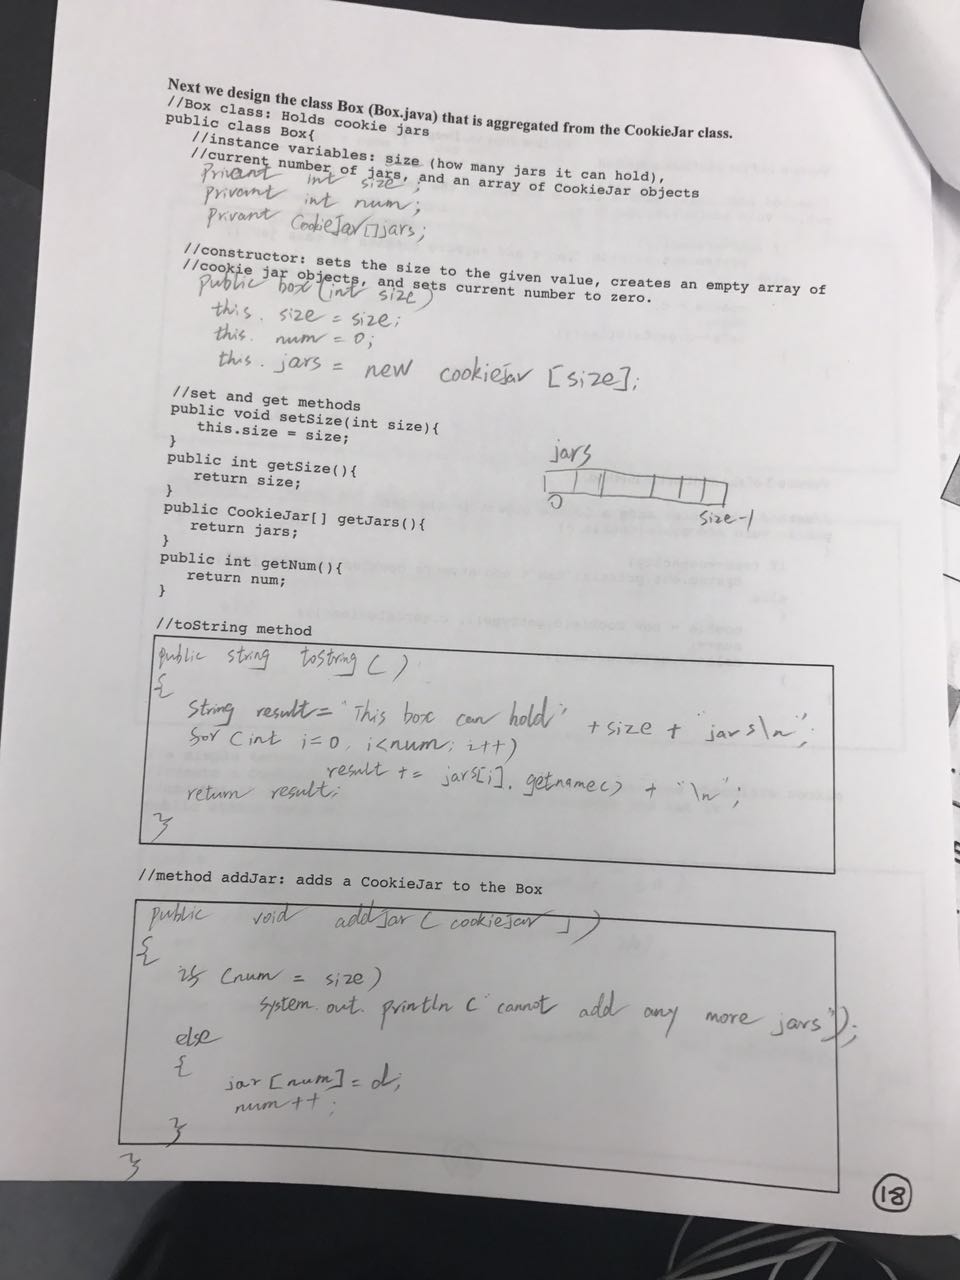 Next we design the class Box (Box.java) that is aggregated from the CookieJar class.
//Box class: Holds cookie jars
public class Box{
//instance variables: size (how many jars it can hold),
//current number of jars, and an array of CookieJar objects
Privant int size ;
Privant int num;
Privant CookieJar[]jars;
//constructor: sets the size to the given value, creates an empty array of
//cookie jar objects, and sets current number to zero.
public box (int size)
this. size = size;
this. num = 0;
this. jars = new cookieJar [size];
//set and get methods
public void setSize(int size){
this.size = size;
}
public int getSize(){
return size;
}
public CookieJar[] getJars(){
return jars;
}
public int getNum(){
return num;
}
jars
0 size-1
//toString method
public string tostring ( )
{
String result= "This box can hold" + size + "jars\n";
for (int i=0, i<num; i++)
result += jars[i]. getname() + "\n";
return result;
}
//method addJar: adds a CookieJar to the Box
public void addJar ( cookieJar J )
{
if (num = size)
system. out. println ( "cannot add any more jars");
else
{
jar [num] = d;
num++ ;
}
}
18